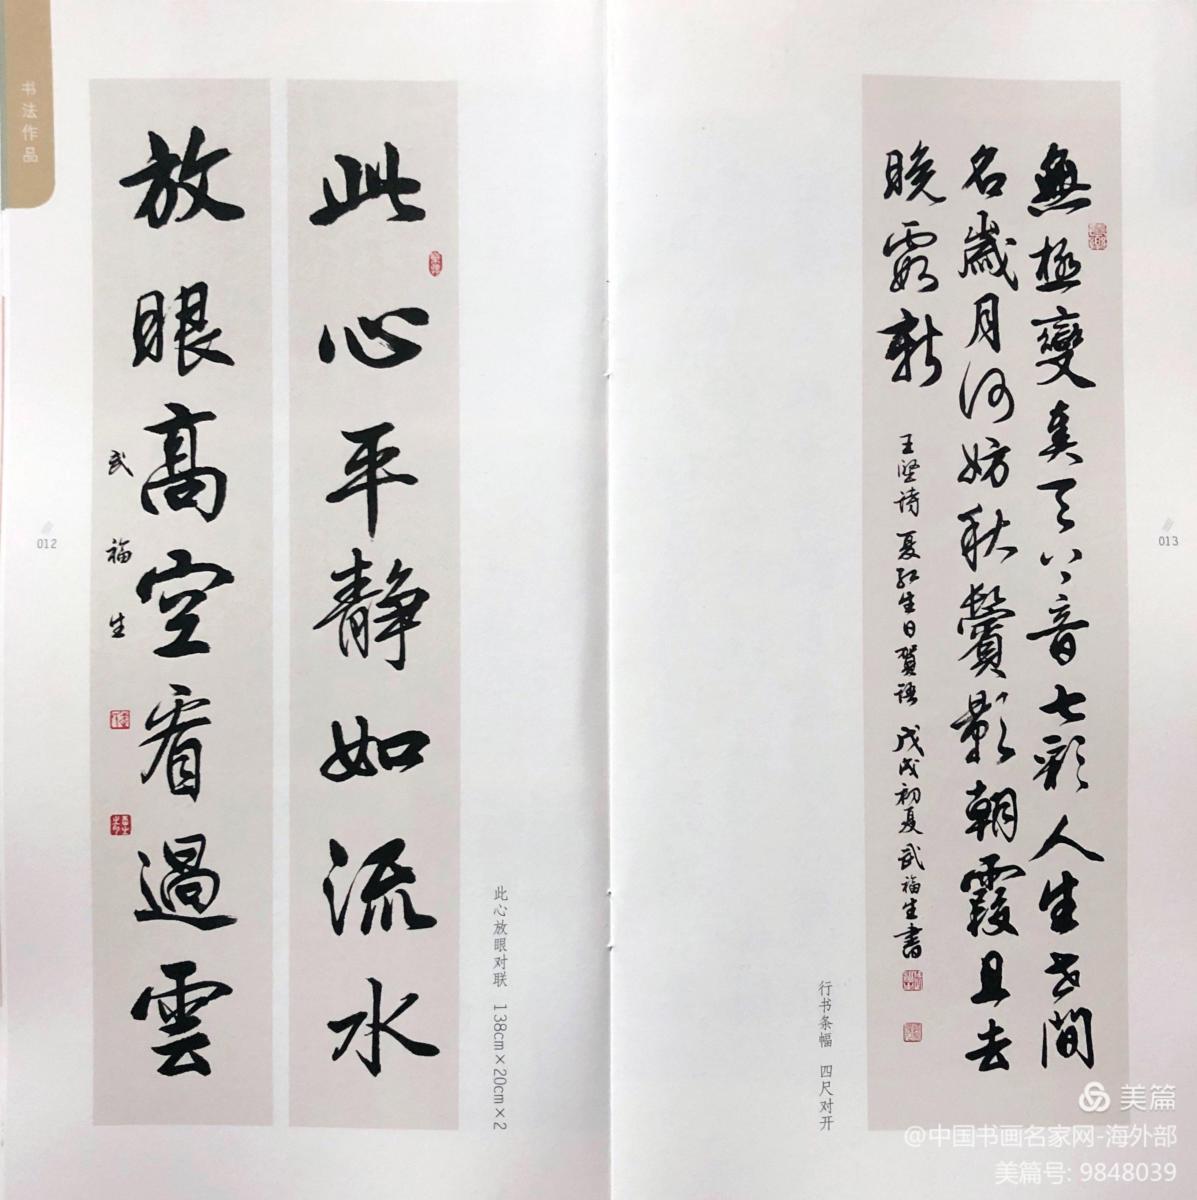 书法作品
此心平静如流水
放眼高空看過雲
武福生
012
此心放眼对联 138cm×20cm×2
無極變奏八音七彩人生世間
名歲月何妨秋鬢影朝霞且去
晚霞新
王坚诗 夏红生日贺语 戊戌初夏 武福生書
行书条幅 四尺对开
013
美篇
@中国书画名家网-海外部
美篇号: 9848039